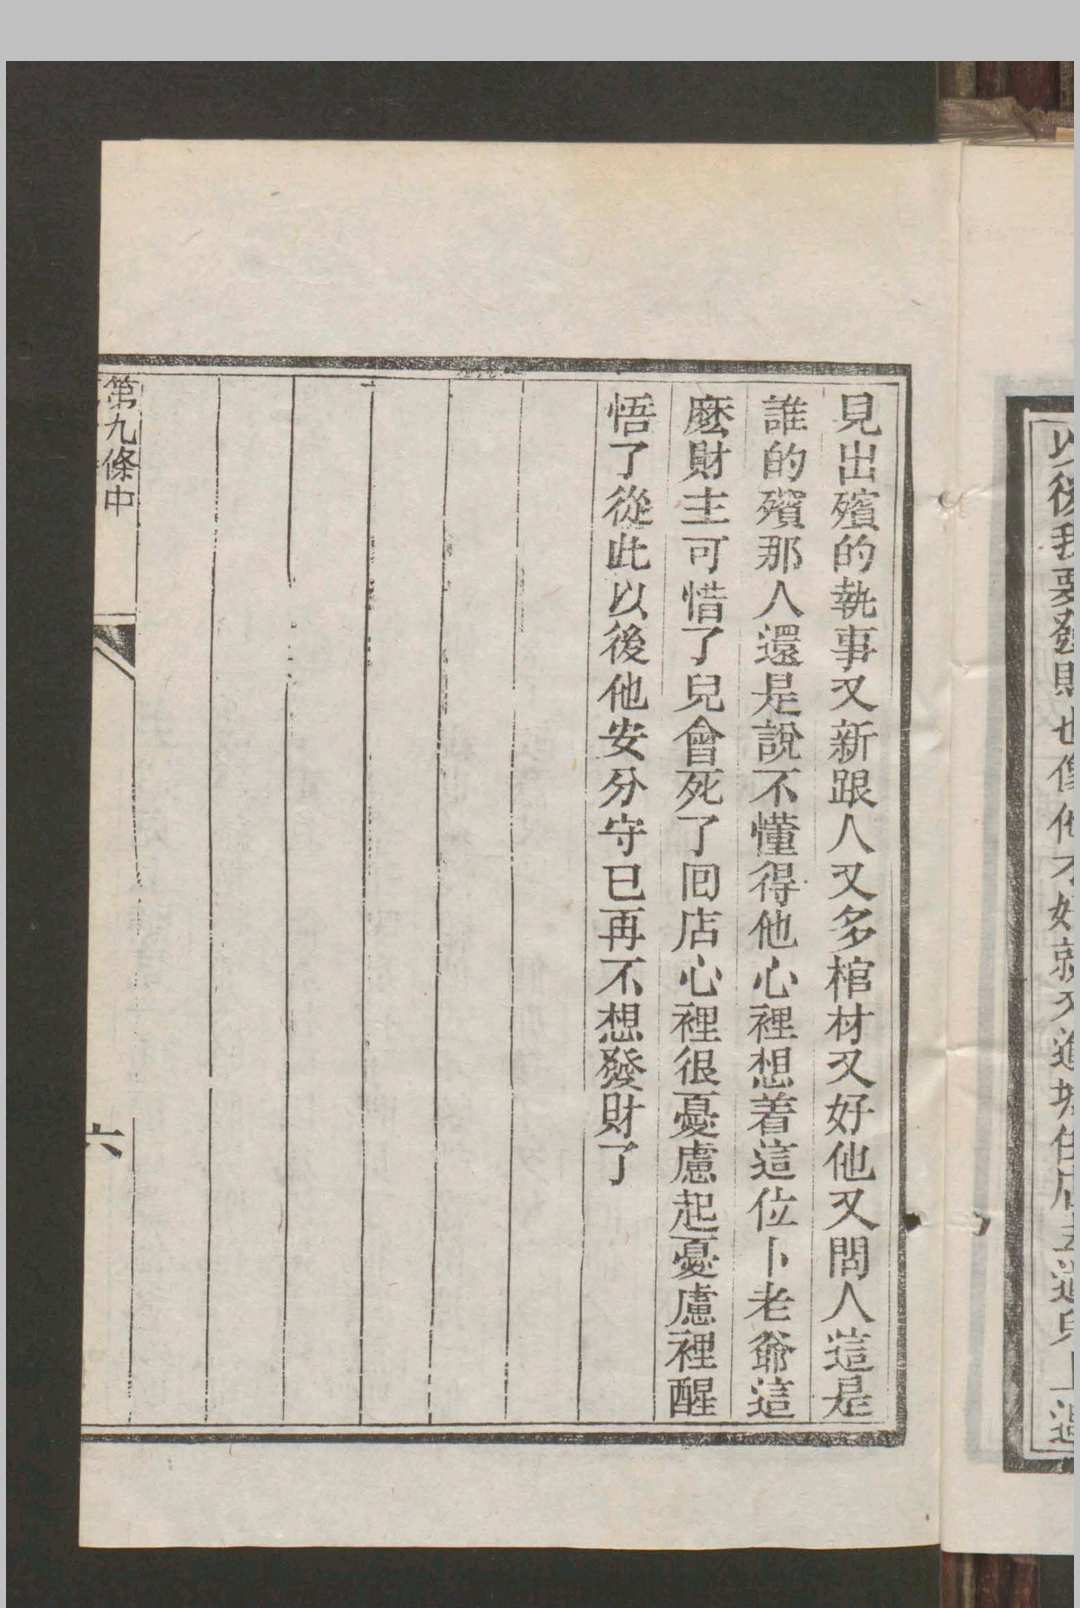 見出殯的執事又新跟人又多棺材又好他又問人這是
誰的殯那人還是說不懂得他心裡想着這位卜老爺這
麽財主可惜了兒會死了回店心裡很憂慮起憂慮裡醒
悟了從此以後他安分守已再不想發財了
第九條中
六